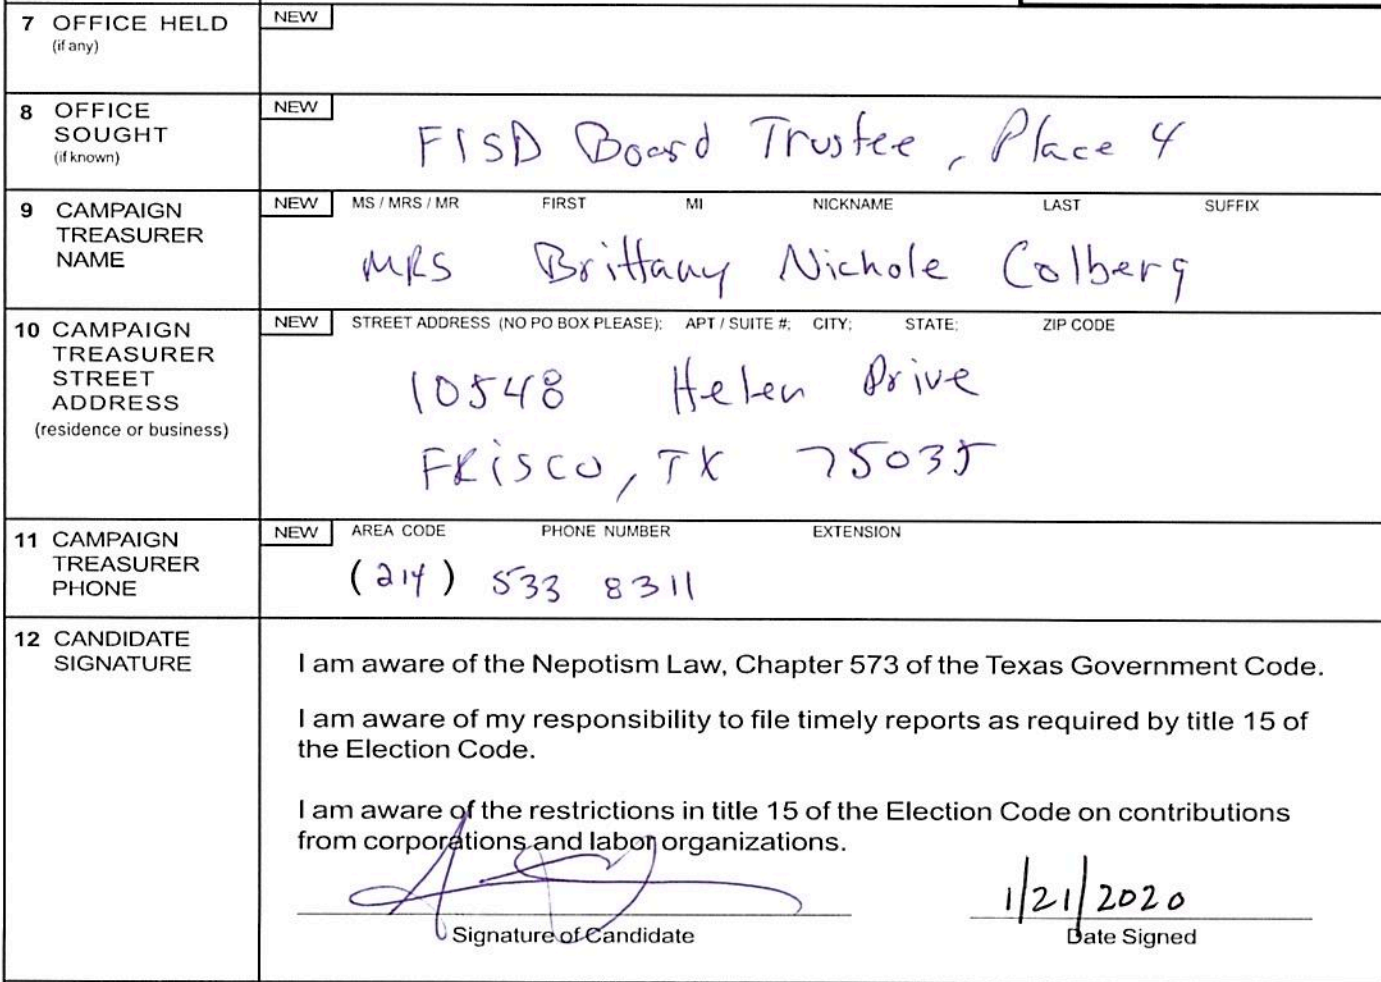 7 OFFICE HELD
(if any)
NEW
8 OFFICE SOUGHT
(if known)
NEW
FISD Board Trustee, Place 4
9 CAMPAIGN TREASURER NAME
NEW MS / MRS / MR FIRST MI NICKNAME LAST SUFFIX
MRS Brittany Nichole Colberg
10 CAMPAIGN TREASURER STREET ADDRESS
(residence or business)
NEW STREET ADDRESS (NO PO BOX PLEASE); APT / SUITE #; CITY; STATE; ZIP CODE
10548 Helen Drive
FRISCO, TX 75035
11 CAMPAIGN TREASURER PHONE
NEW AREA CODE PHONE NUMBER EXTENSION
(214) 533 8311
12 CANDIDATE SIGNATURE
I am aware of the Nepotism Law, Chapter 573 of the Texas Government Code.
I am aware of my responsibility to file timely reports as required by title 15 of
the Election Code.
I am aware of the restrictions in title 15 of the Election Code on contributions
from corporations and labor organizations.
1/21/2020
Signature of Candidate Date Signed